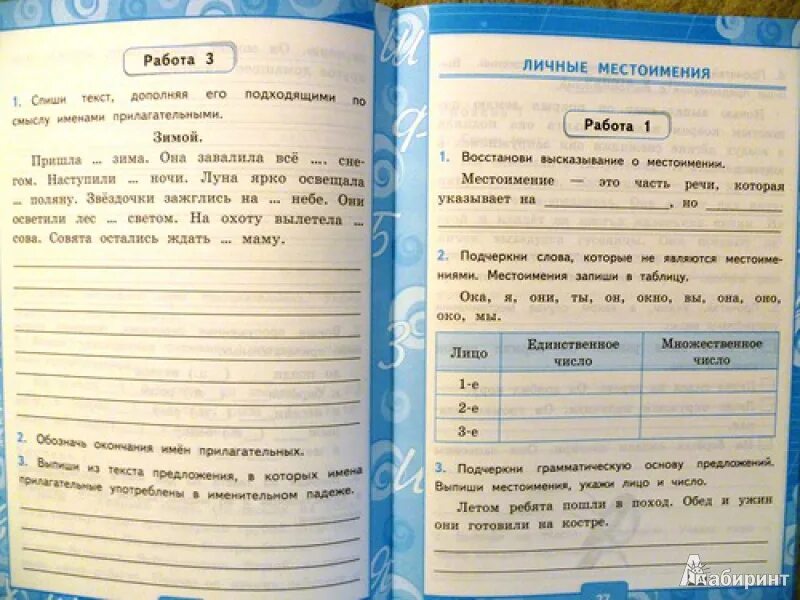 Работа 3
1. Спиши текст, дополняя его подходящими по
смыслу именами прилагательными.
Зимой.
Пришла ... зима. Она завалила всё .... сне-
гом. Наступили ... ночи. Луна ярко освещала
... поляну. Звёздочки зажглись на ... небе. Они
осветили лес ... светом. На охоту вылетела ...
сова. Совята остались ждать ... маму.
2. Обозначь окончания имён прилагательных.
3. Выпиши из текста предложения, в которых имена
прилагательные употреблены в именительном падеже.
ЛИЧНЫЕ МЕСТОИМЕНИЯ
Работа 1
1. Восстанови высказывание о местоимении.
Местоимение — это часть речи, которая
указывает на ____________, но ________
2. Подчеркни слова, которые не являются местоиме-
ниями. Местоимения запиши в таблицу.
Ока, я, они, ты, он, окно, вы, она, оно,
око, мы.
Лицо Единственное число Множественное число
1-е
2-е
3-е
3. Подчеркни грамматическую основу предложений.
Выпиши местоимения, укажи лицо и число.
Летом ребята пошли в поход. Обед и ужин
они готовили на костре.
27
Лабиринт